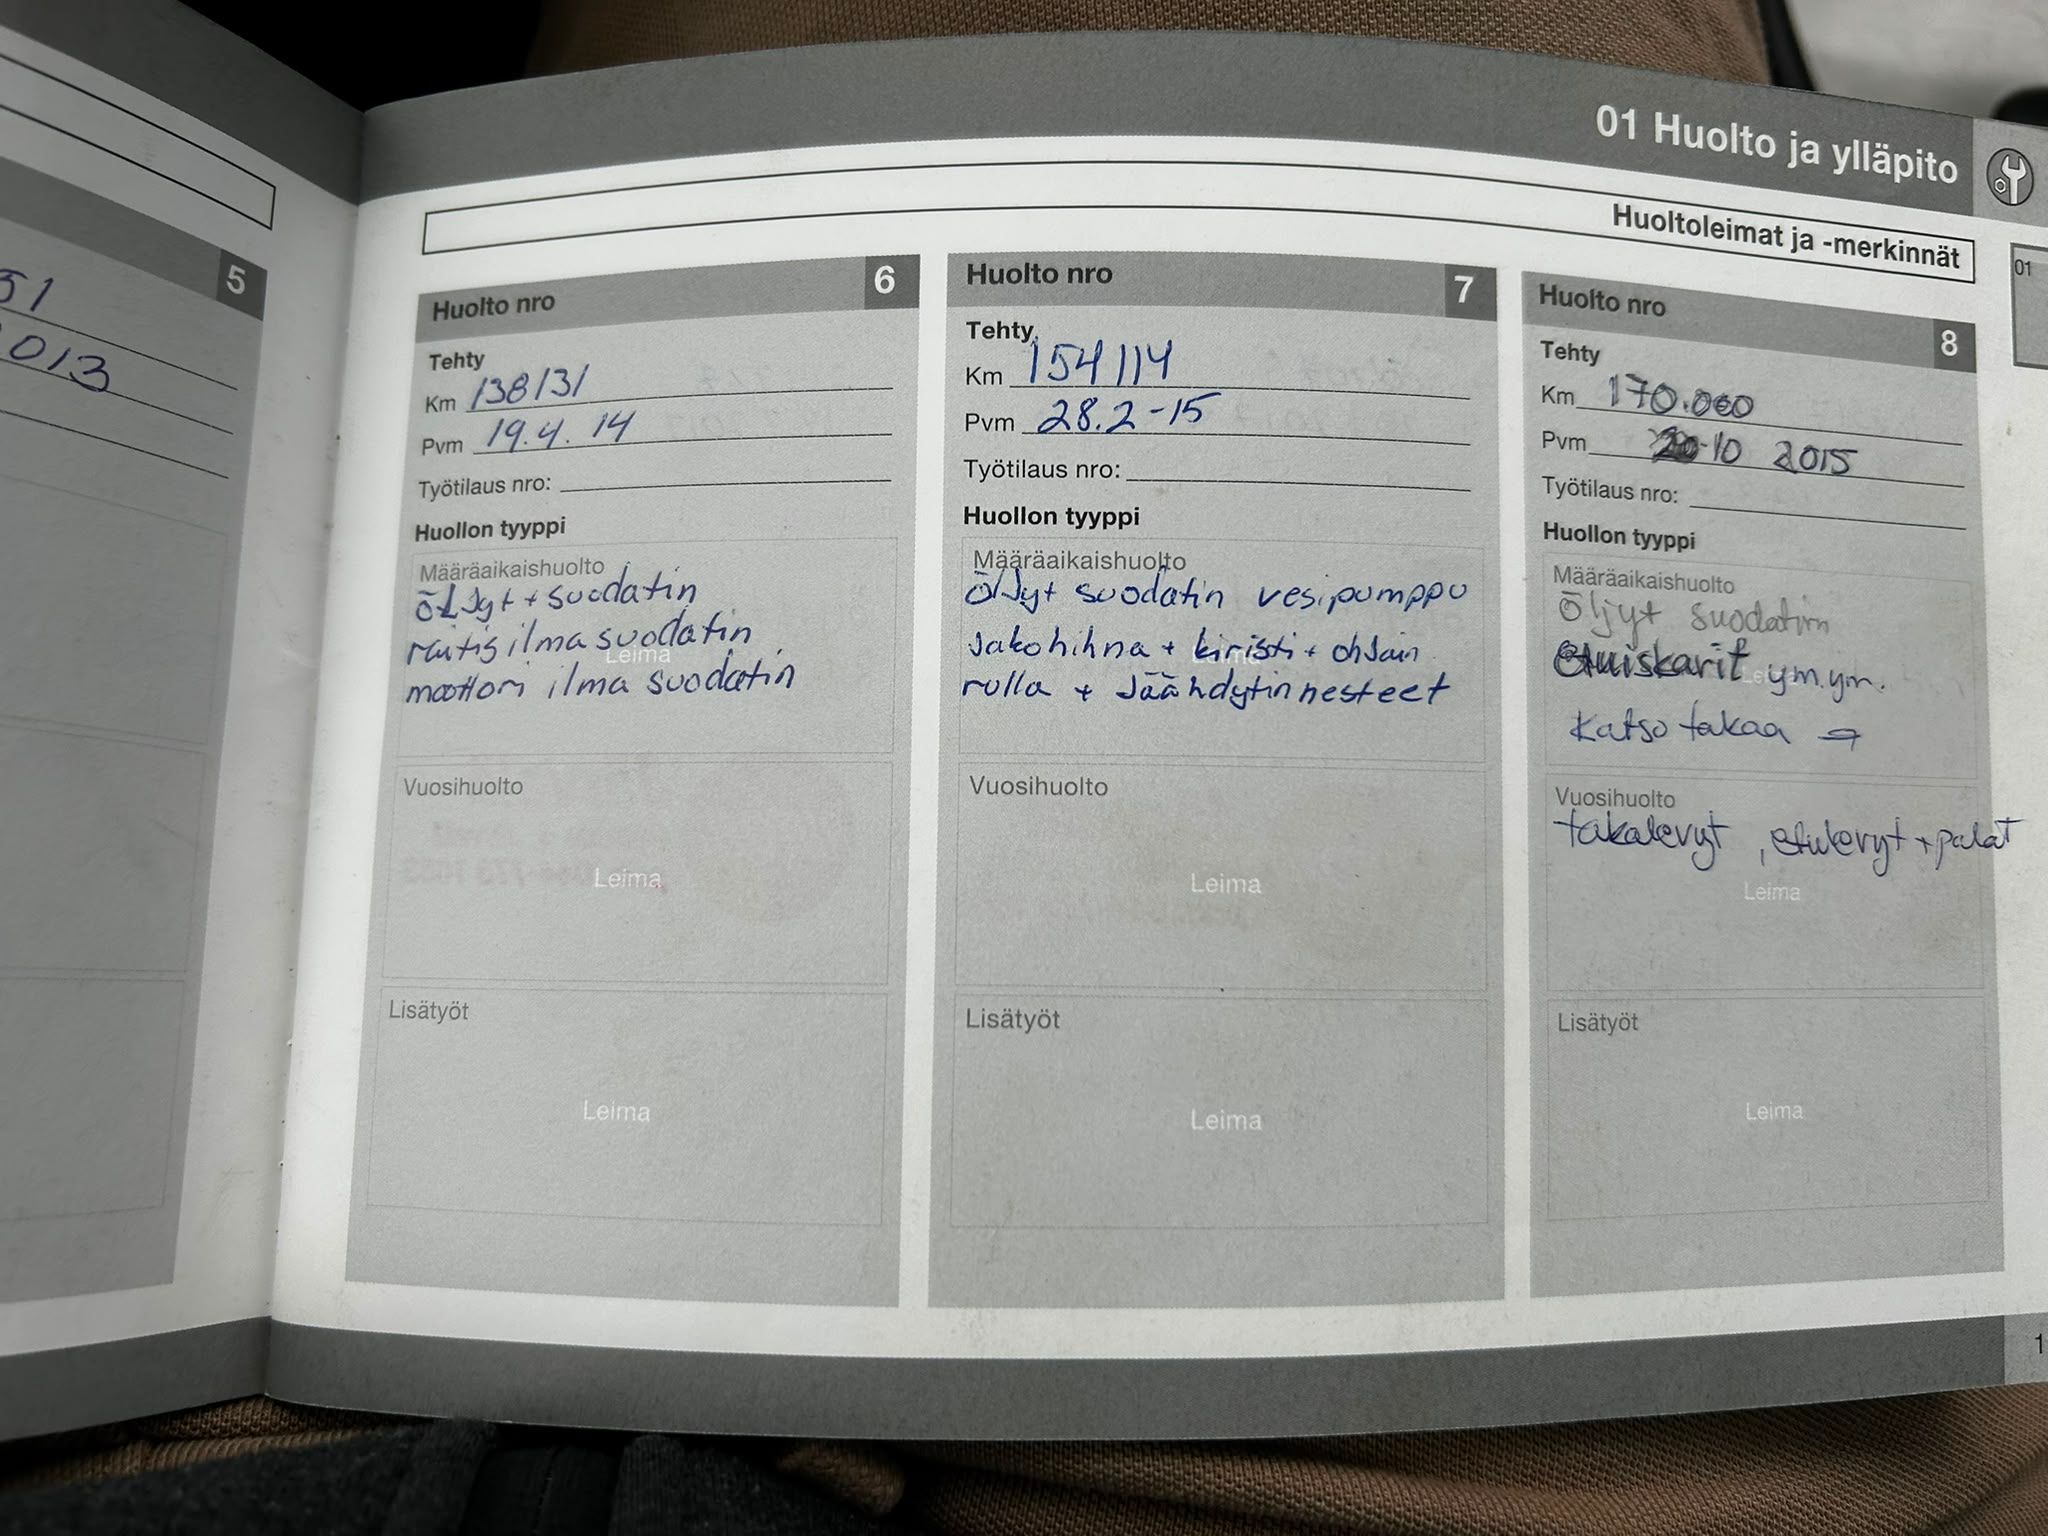 01 Huolto ja ylläpito
Huoltoleimat ja -merkinnät
01
5
51
2013
Huolto nro 6
Tehty
Km 138131
Pvm 19.4. 14
Työtilaus nro:
Huollon tyyppi
Määräaikaishuolto
öljyt + suodatin
raitis ilma suodatin
Leima
moottori ilma suodatin
Vuosihuolto
Leima
Lisätyöt
Leima
Huolto nro 7
Tehty
Km 154114
Pvm 28.2-15
Työtilaus nro:
Huollon tyyppi
Määräaikaishuolto
öljyt suodatin vesipumppu
Jakohihna + kiristi + ohjain
rulla + Jäähdytinnesteet
Vuosihuolto
Leima
Lisätyöt
Leima
Huolto nro 8
Tehty
Km 170.000
Pvm 10 2015
Työtilaus nro:
Huollon tyyppi
Määräaikaishuolto
Öljyt suodatin
etuiskarit ym.ym.
Katso takaa →
Vuosihuolto
takalevyt, etulevyt + palat
Leima
Lisätyöt
Leima
1